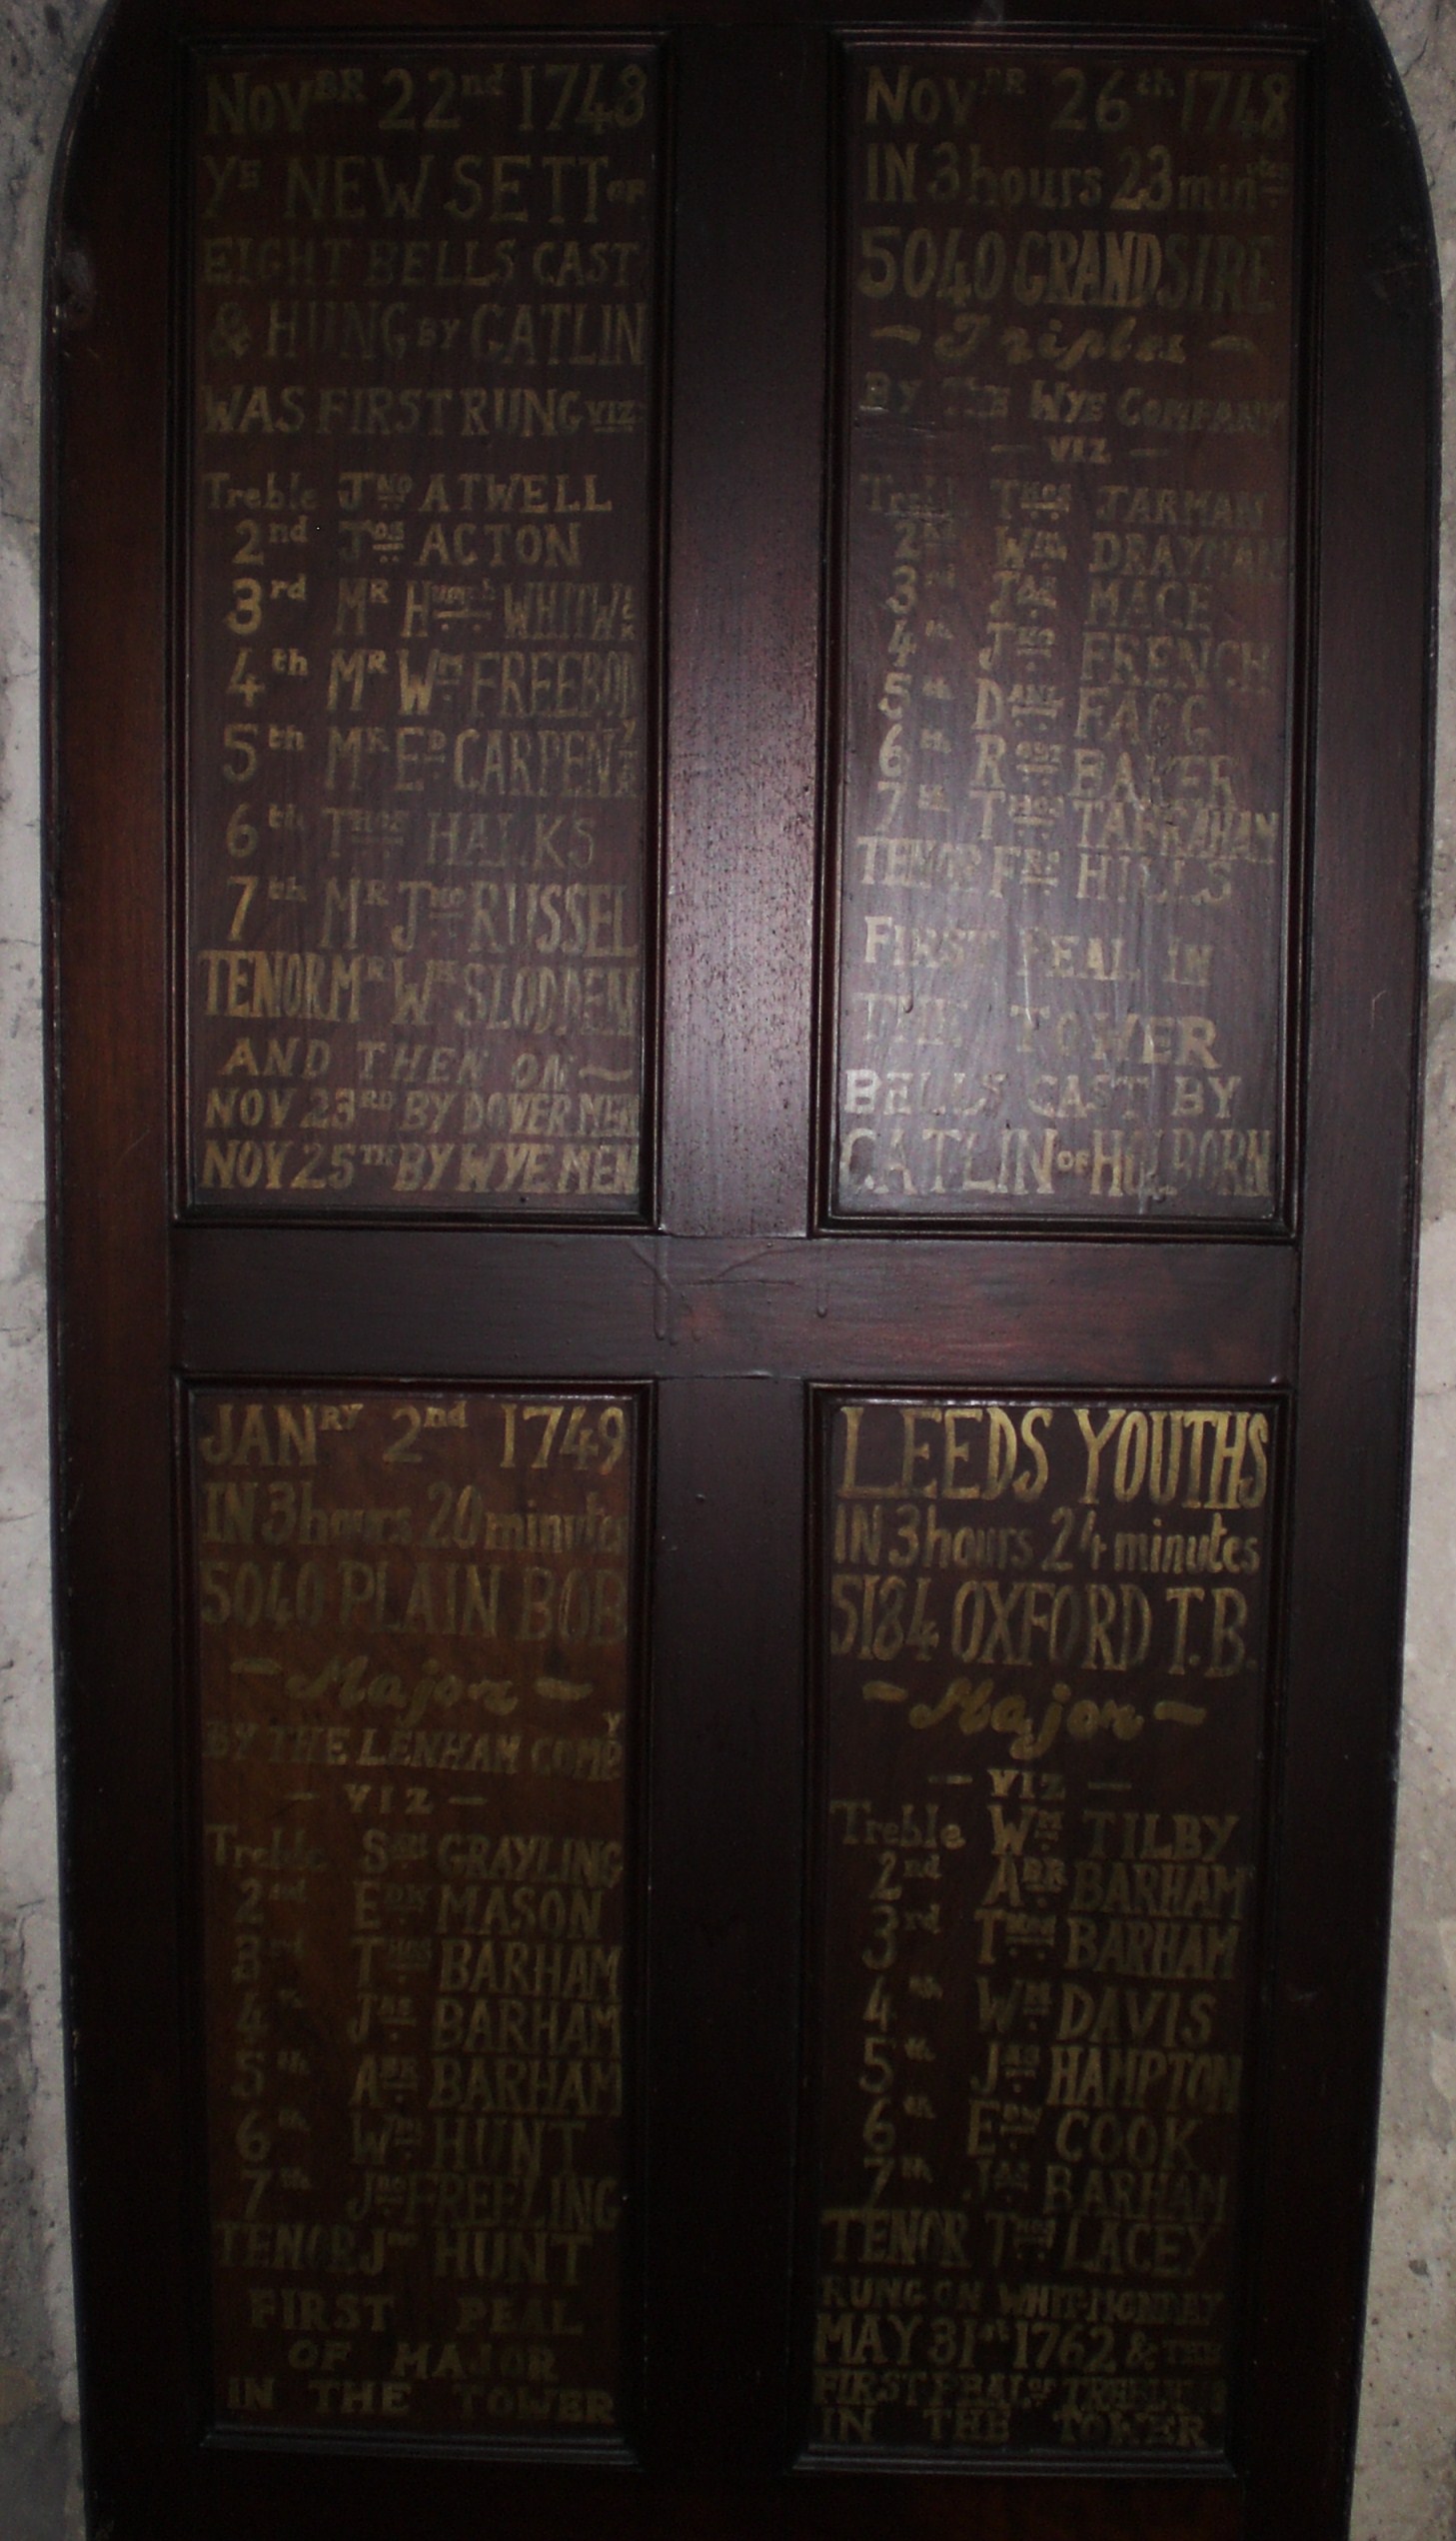 NOVBR 22nd 1748
YE NEW SETT OF
EIGHT BELLS CAST
& HUNG BY CATLIN
WAS FIRST RUNG VIZ
Treble JNO ATWELL
2nd Jos ACTON
3rd MR Humph WHITW
4th MR WM FREEBODY
5th MR ED CARPENTR
6th THOS HALKS
7th MR JNO RUSSEL
TENOR MR WM SLODDEN
AND THEN ON ~
NOV 23RD BY DOVER MEN
NOV 25TH BY WYE MEN
NOVBR 26th 1748
IN 3 hours 23 minites
5040 GRANDSIRE
- Triples -
BY THE WYE COMPANY
- VIZ -
Treble THOS JARMAN
2nd WM
3rd JAS MACE
4th JNO FRENCH
5th DANL FAGG
6th ROBT BAKER
7th THOS
TENOR FRS HILLS
FIRST PEAL IN
THE TOWER
BELLS CAST BY
CATLIN OF HOLBORN
JANRY 2nd 1749
IN 3 hours 20 minutes
5040 PLAIN BOB
- Major -
BY THE LENHAM COMPY
- VIZ -
Treble SAML GRAYLING
2nd EDW MASON
3rd THOS BARHAM
4th JAS BARHAM
5th ABR BARHAM
6th WM HUNT
7th JNO FREELING
TENOR JNO HUNT
FIRST PEAL
OF MAJOR
IN THE TOWER
LEEDS YOUTHS
IN 3 hours 24 minutes
5184 OXFORD T.B.
- Major -
- VIZ -
Treble WM TILBY
2nd ABR BARHAM
3rd THOS BARHAM
4th WM DAVIS
5th JNO HAMPTON
6th EDW COOK
7th JAS BARHAM
TENOR THOS LACEY
RUNG ON WHIT-MONDAY
MAY 31st 1762 & THE
FIRST PEAL OF TREBLE
IN THE TOWER